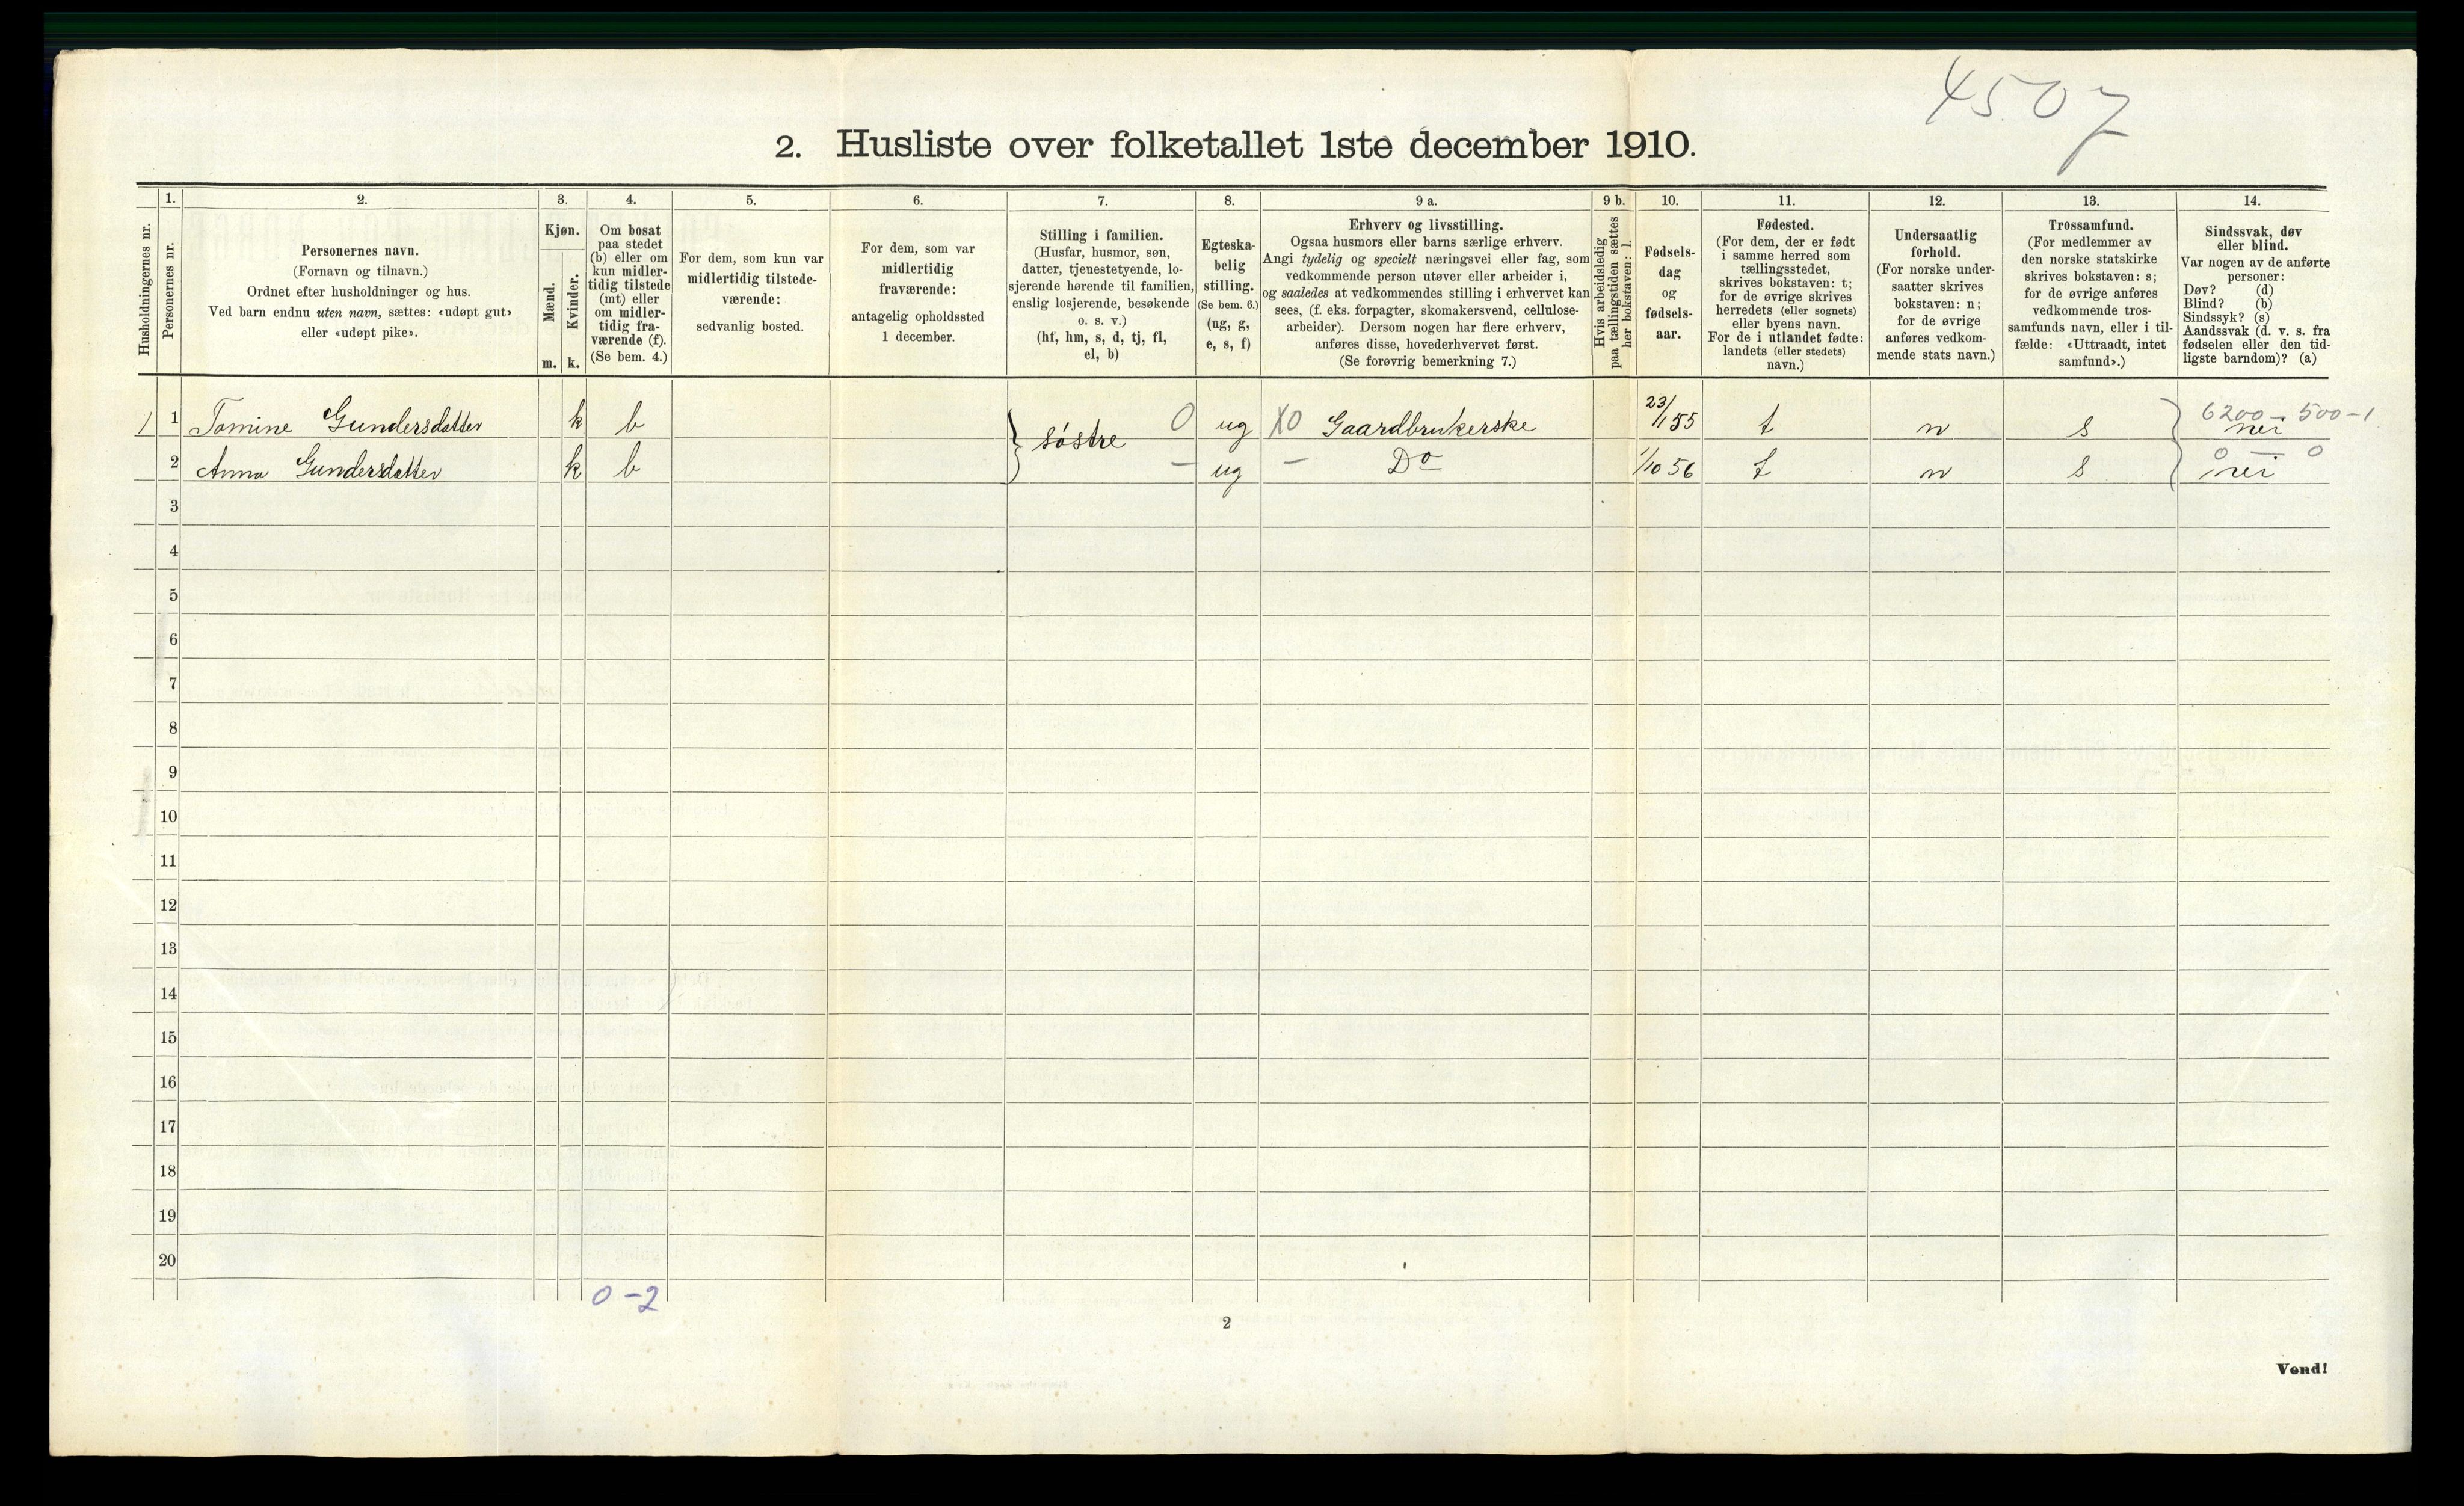 4507
2. Husliste over folketallet 1ste december 1910.
Husholdningernes nr.
1.
Personernes nr.
2.
Personernes navn.
(Fornavn og tilnavn.)
Ordnet efter husholdninger og hus.
Ved barn endnu uten navn, sættes: «udøpt gut»
eller «udøpt pike».
3.
Kjøn.
Mænd.
Kvinder.
m. k.
4.
Om bosat
paa stedet
(b) eller om
kun midler-
tidig tilstede
(mt) eller
om midler-
tidig fra-
værende (f).
(Se bem. 4.)
5.
For dem, som kun var
midlertidig tilstede-
værende:
sedvanlig bosted.
6.
For dem, som var
midlertidig
fraværende:
antagelig opholdssted
1 december.
7.
Stilling i familien.
(Husfar, husmor, søn,
datter, tjenestetyende, lo-
sjerende hørende til familien,
enslig losjerende, besøkende
o. s. v.)
(hf, hm, s, d, tj, fl,
el, b)
8.
Egteska-
belig
stilling.
(Se bem. 6.)
(ug, g,
e, s, f)
9 a.
Erhverv og livsstilling.
Ogsaa husmors eller barns særlige erhverv.
Angi tydelig og specielt næringsvei eller fag, som
vedkommende person utøver eller arbeider i,
og saaledes at vedkommendes stilling i erhvervet kan
sees, (f. eks. forpagter, skomakersvend, cellulose-
arbeider). Dersom nogen har flere erhverv,
anføres disse, hovederhvervet først.
(Se forøvrig bemerkning 7.)
9 b.
Hvis arbeidsledig
paa tællingstiden sættes
her bokstaven: l.
10.
Fødsels-
dag
og
fødsels-
aar.
11.
Fødested.
(For dem, der er født
i samme herred som
tællingsstedet,
skrives bokstaven: t;
for de øvrige skrives
herredets (eller sognets)
eller byens navn.
For de i utlandet fødte:
landets (eller stedets)
navn.)
12.
Undersaatlig
forhold.
(For norske under-
saatter skrives
bokstaven: n;
for de øvrige
anføres vedkom-
mende stats navn.)
13.
Trossamfund.
(For medlemmer av
den norske statskirke
skrives bokstaven: s;
for de øvrige anføres
vedkommende tros-
samfunds navn, eller i til-
fælde: «Uttraadt, intet
samfund».)
14.
Sindssvak, døv
eller blind.
Var nogen av de anførte
personer:
Døv? (d)
Blind? (b)
Sindssyk? (s)
Aandssvak (d. v. s. fra
fødselen eller den tid-
ligste barndom)? (a)
1 1 Tomine Gundersdatter k b } søstre 0 ug X0 Gaardbrukerske 23/1 55 t n s } 6200 - 500 - 1 nei
2 Anna Gundersdatter k b - ug - Do 1/10 56 t n s 0 - 0 nei
3
4
5
6
7
8
9
10
11
12
13
14
15
16
17
18
19
20
0 - 2
2
Vend!